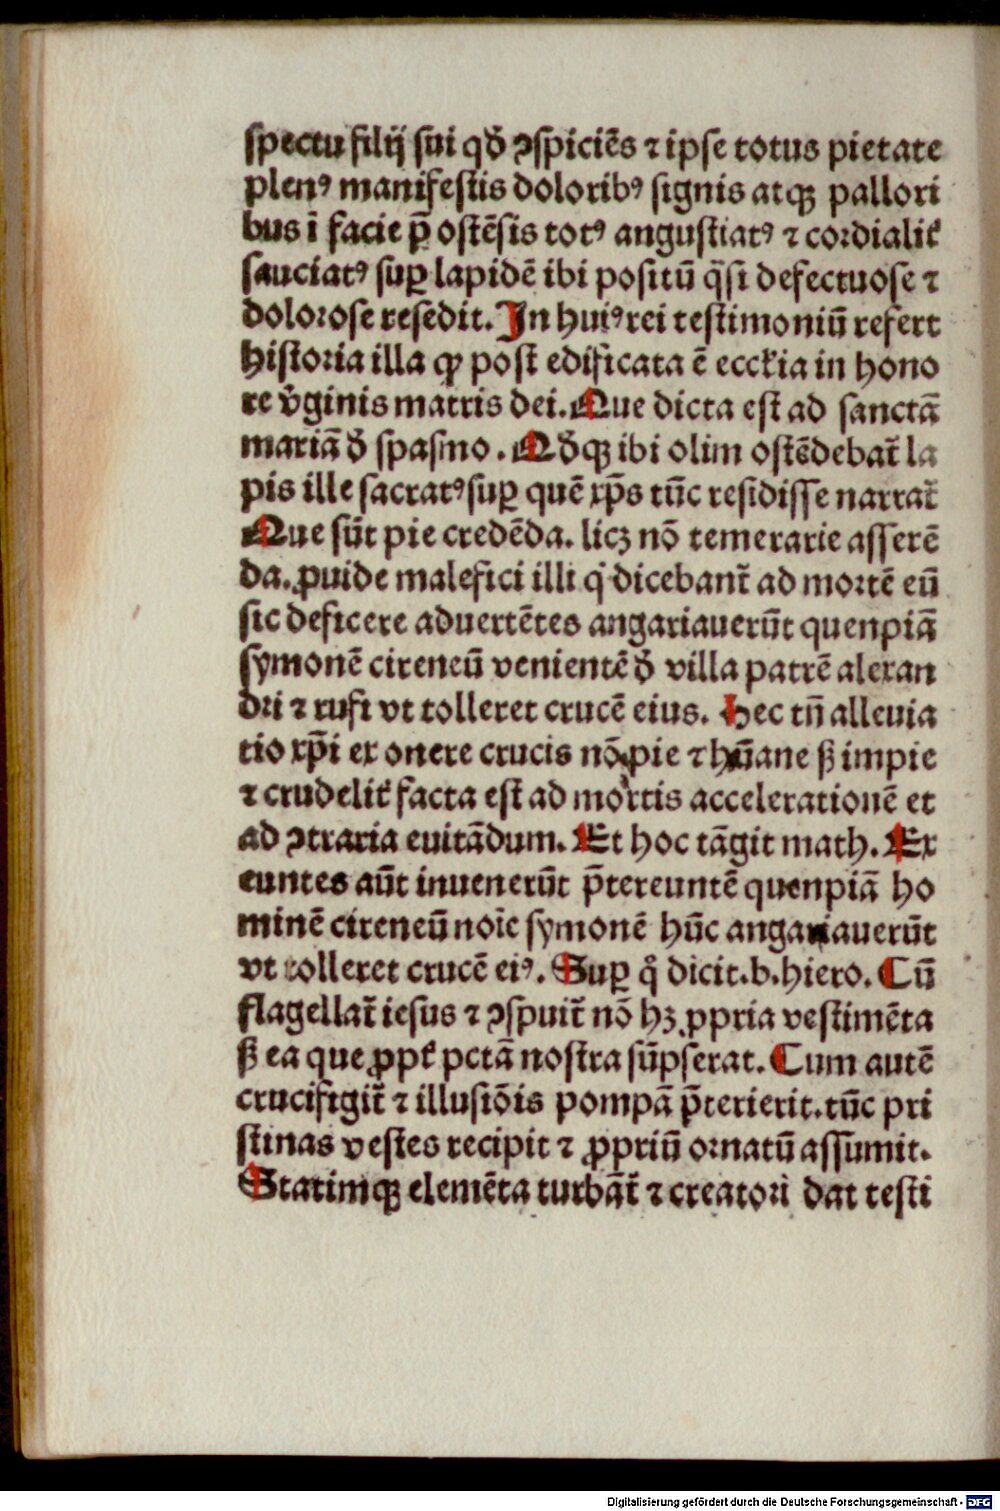 spectu filij sui qď ꝯspiciēs ⁊ ipse totus pietate
plenꝰ manifestis doloribꝰ signis atqꝫ pallori
bus ī facie p̄ ostēsis totꝰ angustiatꝰ ⁊ cordialit̉
sauciatꝰ suꝑ lapidē ibi positū q̄si defectuose ⁊
dolorose resedit. In huiꝰ rei testimoniū refert
historia illa ꝙ post edificata ē eccl̉ia in hono
re v̉ginis matris dei. Que dicta est ad sanctā
mariā ď spasmo. Qďqꝫ ibi olim ostēdebat̉ la
pis ille sacratꝰ suꝑ quē xp̄s tūc residisse narrat̉
Que sūt pie credēda. licꝫ nō temerarie asserē
da. ꝓuide malefici illi q̇ dicebant̉ ad mortē eū
sic deficere aduertētes angariauerūt quenpiā
symonē cireneū venientē ď villa patrē alexan
dri ⁊ rufi vt tolleret crucē eius. Hec tn̄ alleuia
tio xp̄i ex onere crucis nō pie ⁊ hūane ß impie
⁊ crudelit̉ facta est ad mortis accelerationē et
ad ꝯtraria euitādum. Et hoc tāgit math. Ex
euntes aūt inuenerūt p̄tereuntē quenpiā ho
minē cireneū noīe symonē hūc angariauerūt
vt tolleret crucē eiꝰ. Suꝑ q̊ dicit.b.hiero. Cū
flagellat̉ iesus ⁊ ꝯspuit̉ nō hꝫ ꝓpria vestimēta
ß ea que ꝓpt̉ pctā nostra sūpserat. Cum autē
crucifigit̉ ⁊ illusiōis pompā p̄terierit. tūc pri
stinas vestes recipit ⁊ ꝓpriū ornatū assumit.
Statimqꝫ elemēta turbāt̉ ⁊ creatori dat testi
Digitalisierung gefördert durch die Deutsche Forschungsgemeinschaft - DFG